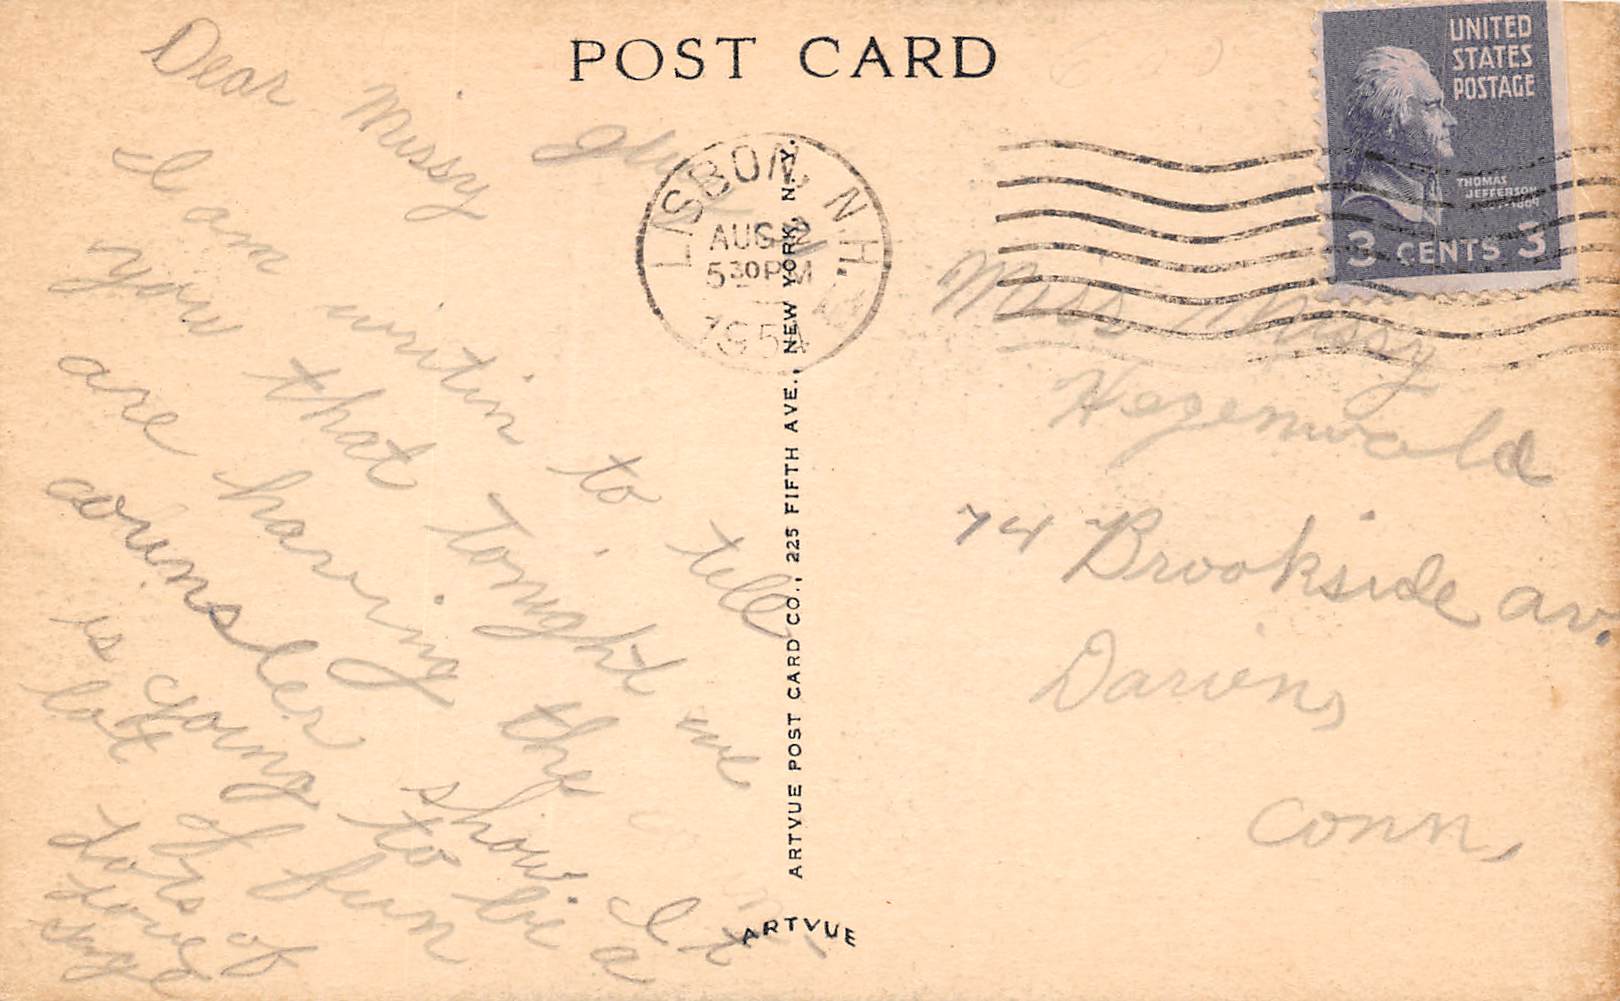 POST CARD
UNITED
STATES
POSTAGE
THOMAS
JEFFERSON
3 CENTS 3
LISBON, N.H.
AUG 2
5 30 PM
1954
Dear Missy
I am writin to tell
you that Tonight we
are having the
counsler show. It
is going to be a
lot of fun
Lots of
Love
Miss Missy
Hagenwald
74 Brookside av.
Darien,
Conn,
ARTVUE POST CARD CO., 225 FIFTH AVE., NEW YORK, N. Y.
ARTVUE